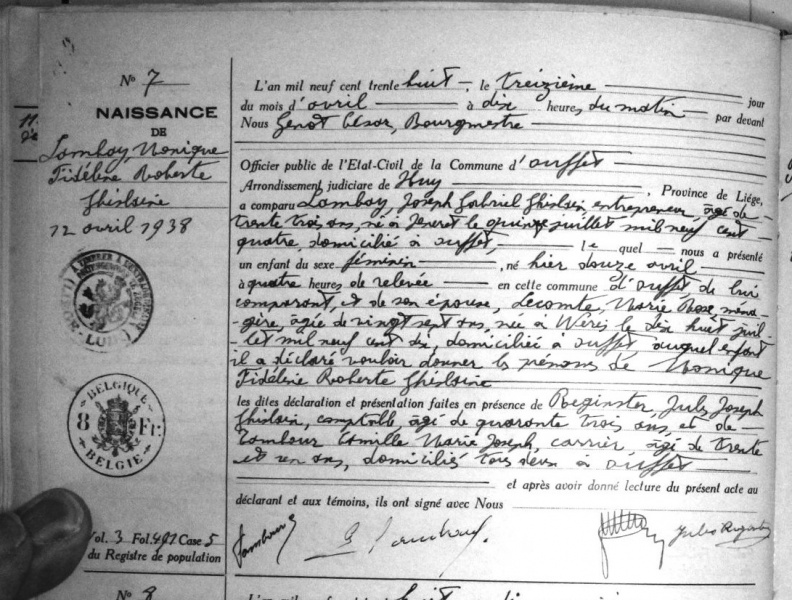 No 7
NAISSANCE
DE
Lamboy, Monique
Fidéline Roberte
Ghislaine
12 avril 1938
L'an mil neuf cent trente huit, le treizième jour
du mois d'avril à dix heures du matin par devant
Nous Genot César, Bourgmestre
Officier public de l'Etat-Civil de la Commune d'ouffet
Arrondissement judiciare de Huy, Province de Liége,
a comparu Lamboy, Joseph Gabriel Ghislain, entrepreneur, âgé de
trente trois ans, né à Jeneret le quinze juillet mil neuf cent
quatre, domicilié à ouffet, le quel nous a présenté
un enfant du sexe féminin, né hier douze avril
à quatre heures de relevée en cette commune d'ouffet, de lui
comparant, et de son épouse, Lecomte, Marie Rose, ména-
gère, âgée de vingt sept ans, née à Wéris le dix huit juil-
let mil neuf cent dix, domiciliée à ouffet auquel enfant
il a déclaré vouloir donner les prénoms de Monique
Fidéline Roberte Ghislaine
les dites déclaration et présentation faites en présence de Reginster, Jules Joseph
Ghislain, comptable, âgé de quarante trois ans, et de
Tambour Camille Marie Joseph, carrier, âgé de trente
et un ans, domiciliés tous deux à ouffet
et après avoir donné lecture du présent acte au
déclarant et aux témoins, ils ont signé avec Nous
BELGIQUE
8 Fr.
BELGIE
Vol. 3 Fol. 491 Case 5
du Registre de population
No 8